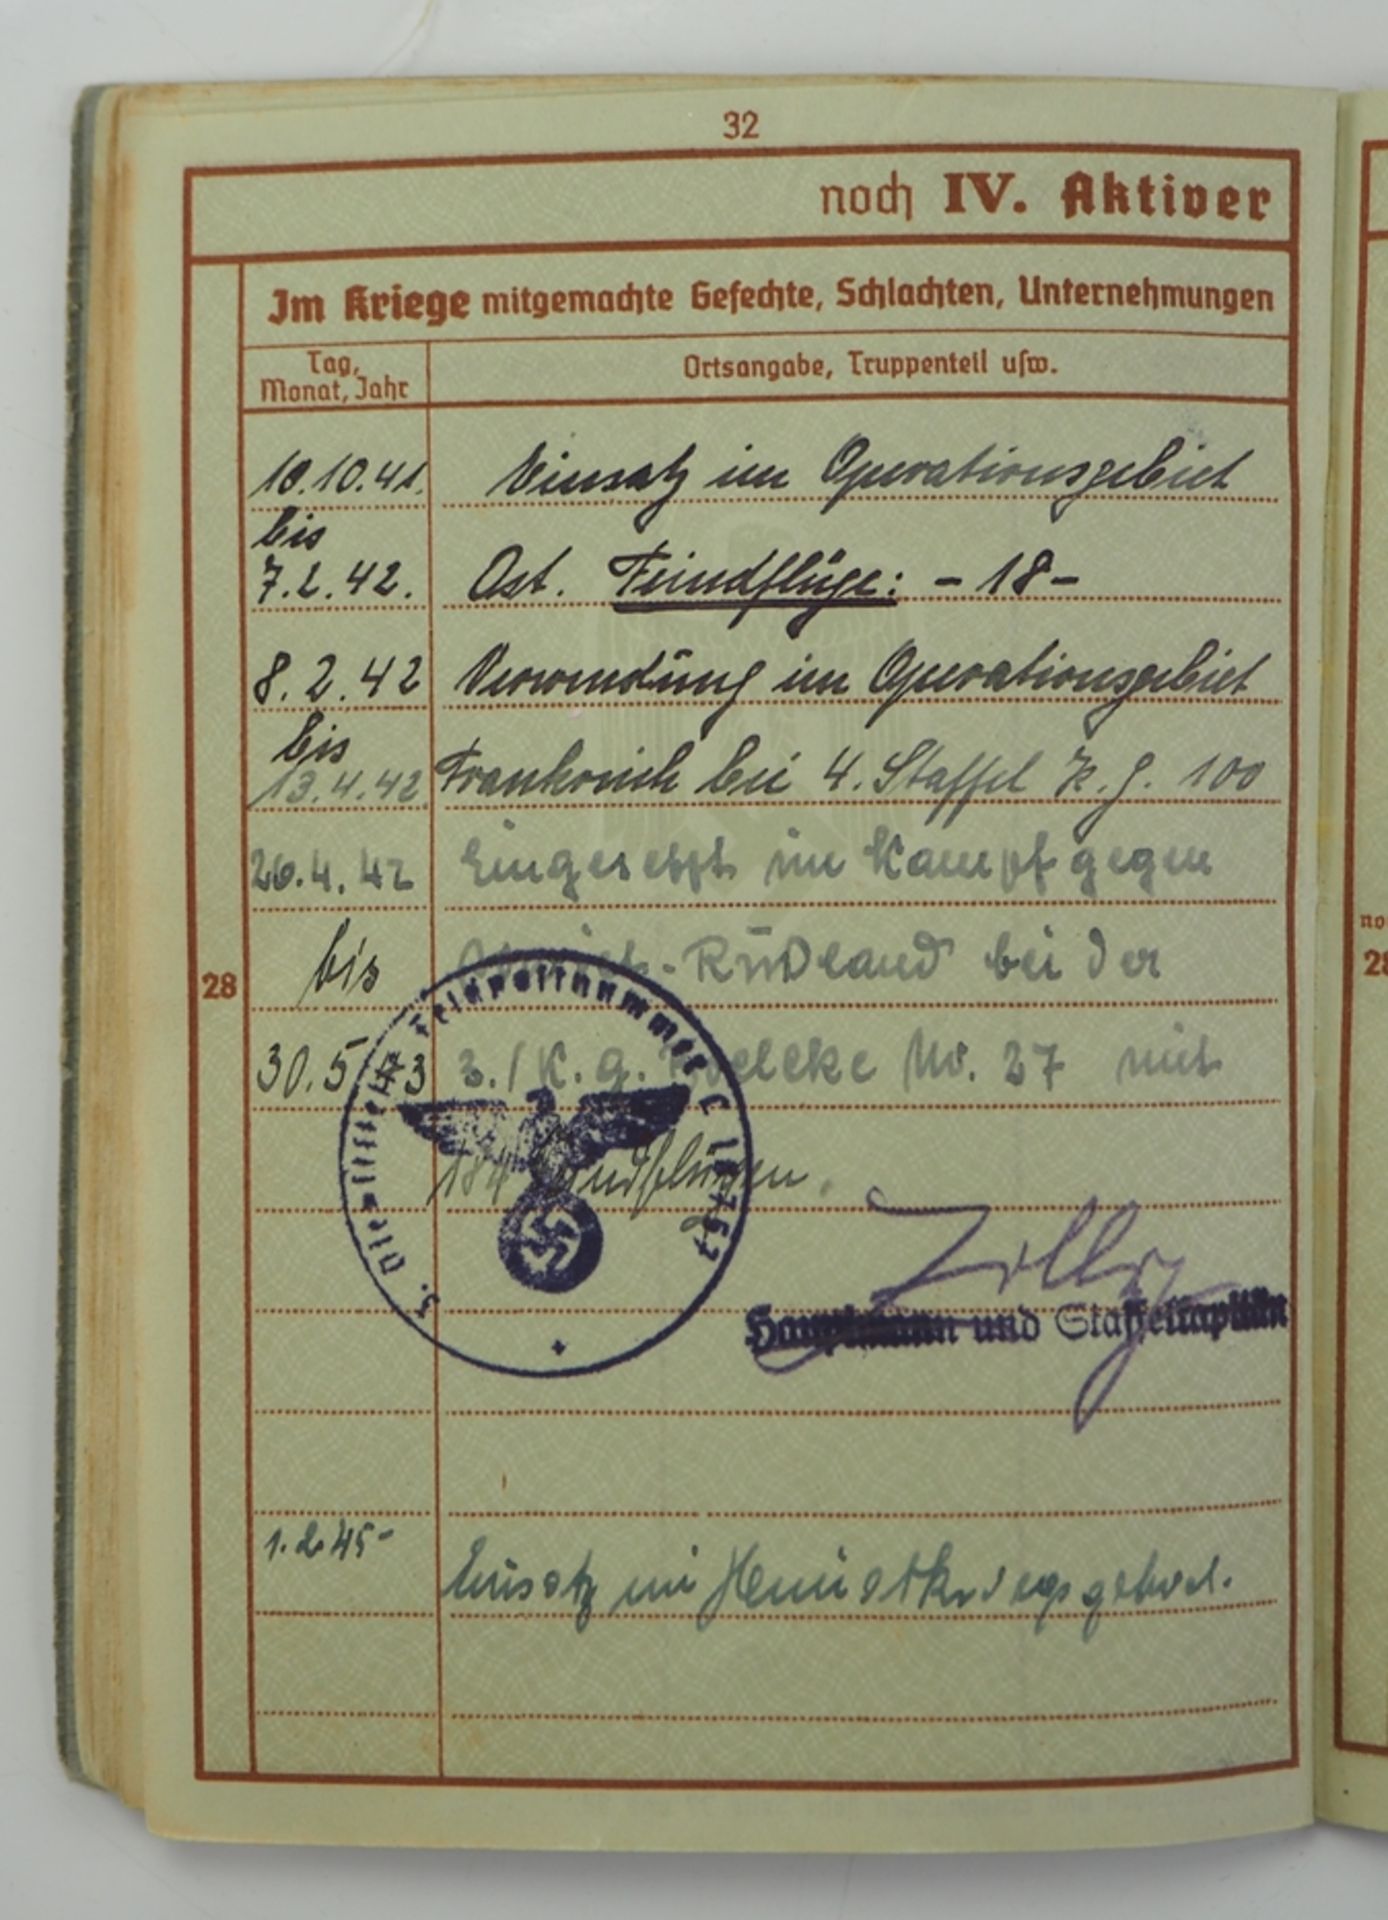 32
noch IV. Aktiver
Im Kriege mitgemachte Gefechte, Schlachten, Unternehmungen
Tag, Monat, Jahr
Ortsangabe, Truppenteil usw.
10.10.41. Einsatz im Operationsgebiet
bis
7.2.42. Ost. Feindflüge: - 18 -
8.2.42 Verwendung im Operationsgebiet
bis
13.4.42 Frankreich bei 4. Staffel K.G. 100
26.4.42 Eingesetzt im Kampf gegen
bis Rußland bei der
28
30.5.43 3./K.G. Boelcke Nr. 27 mit
184 Feindflügen.
Feldpostnummer
3.
Hauptmann und Staffelkapitän
1.2.45- Einsatz im Heimatkriegsgebiet.
no
28